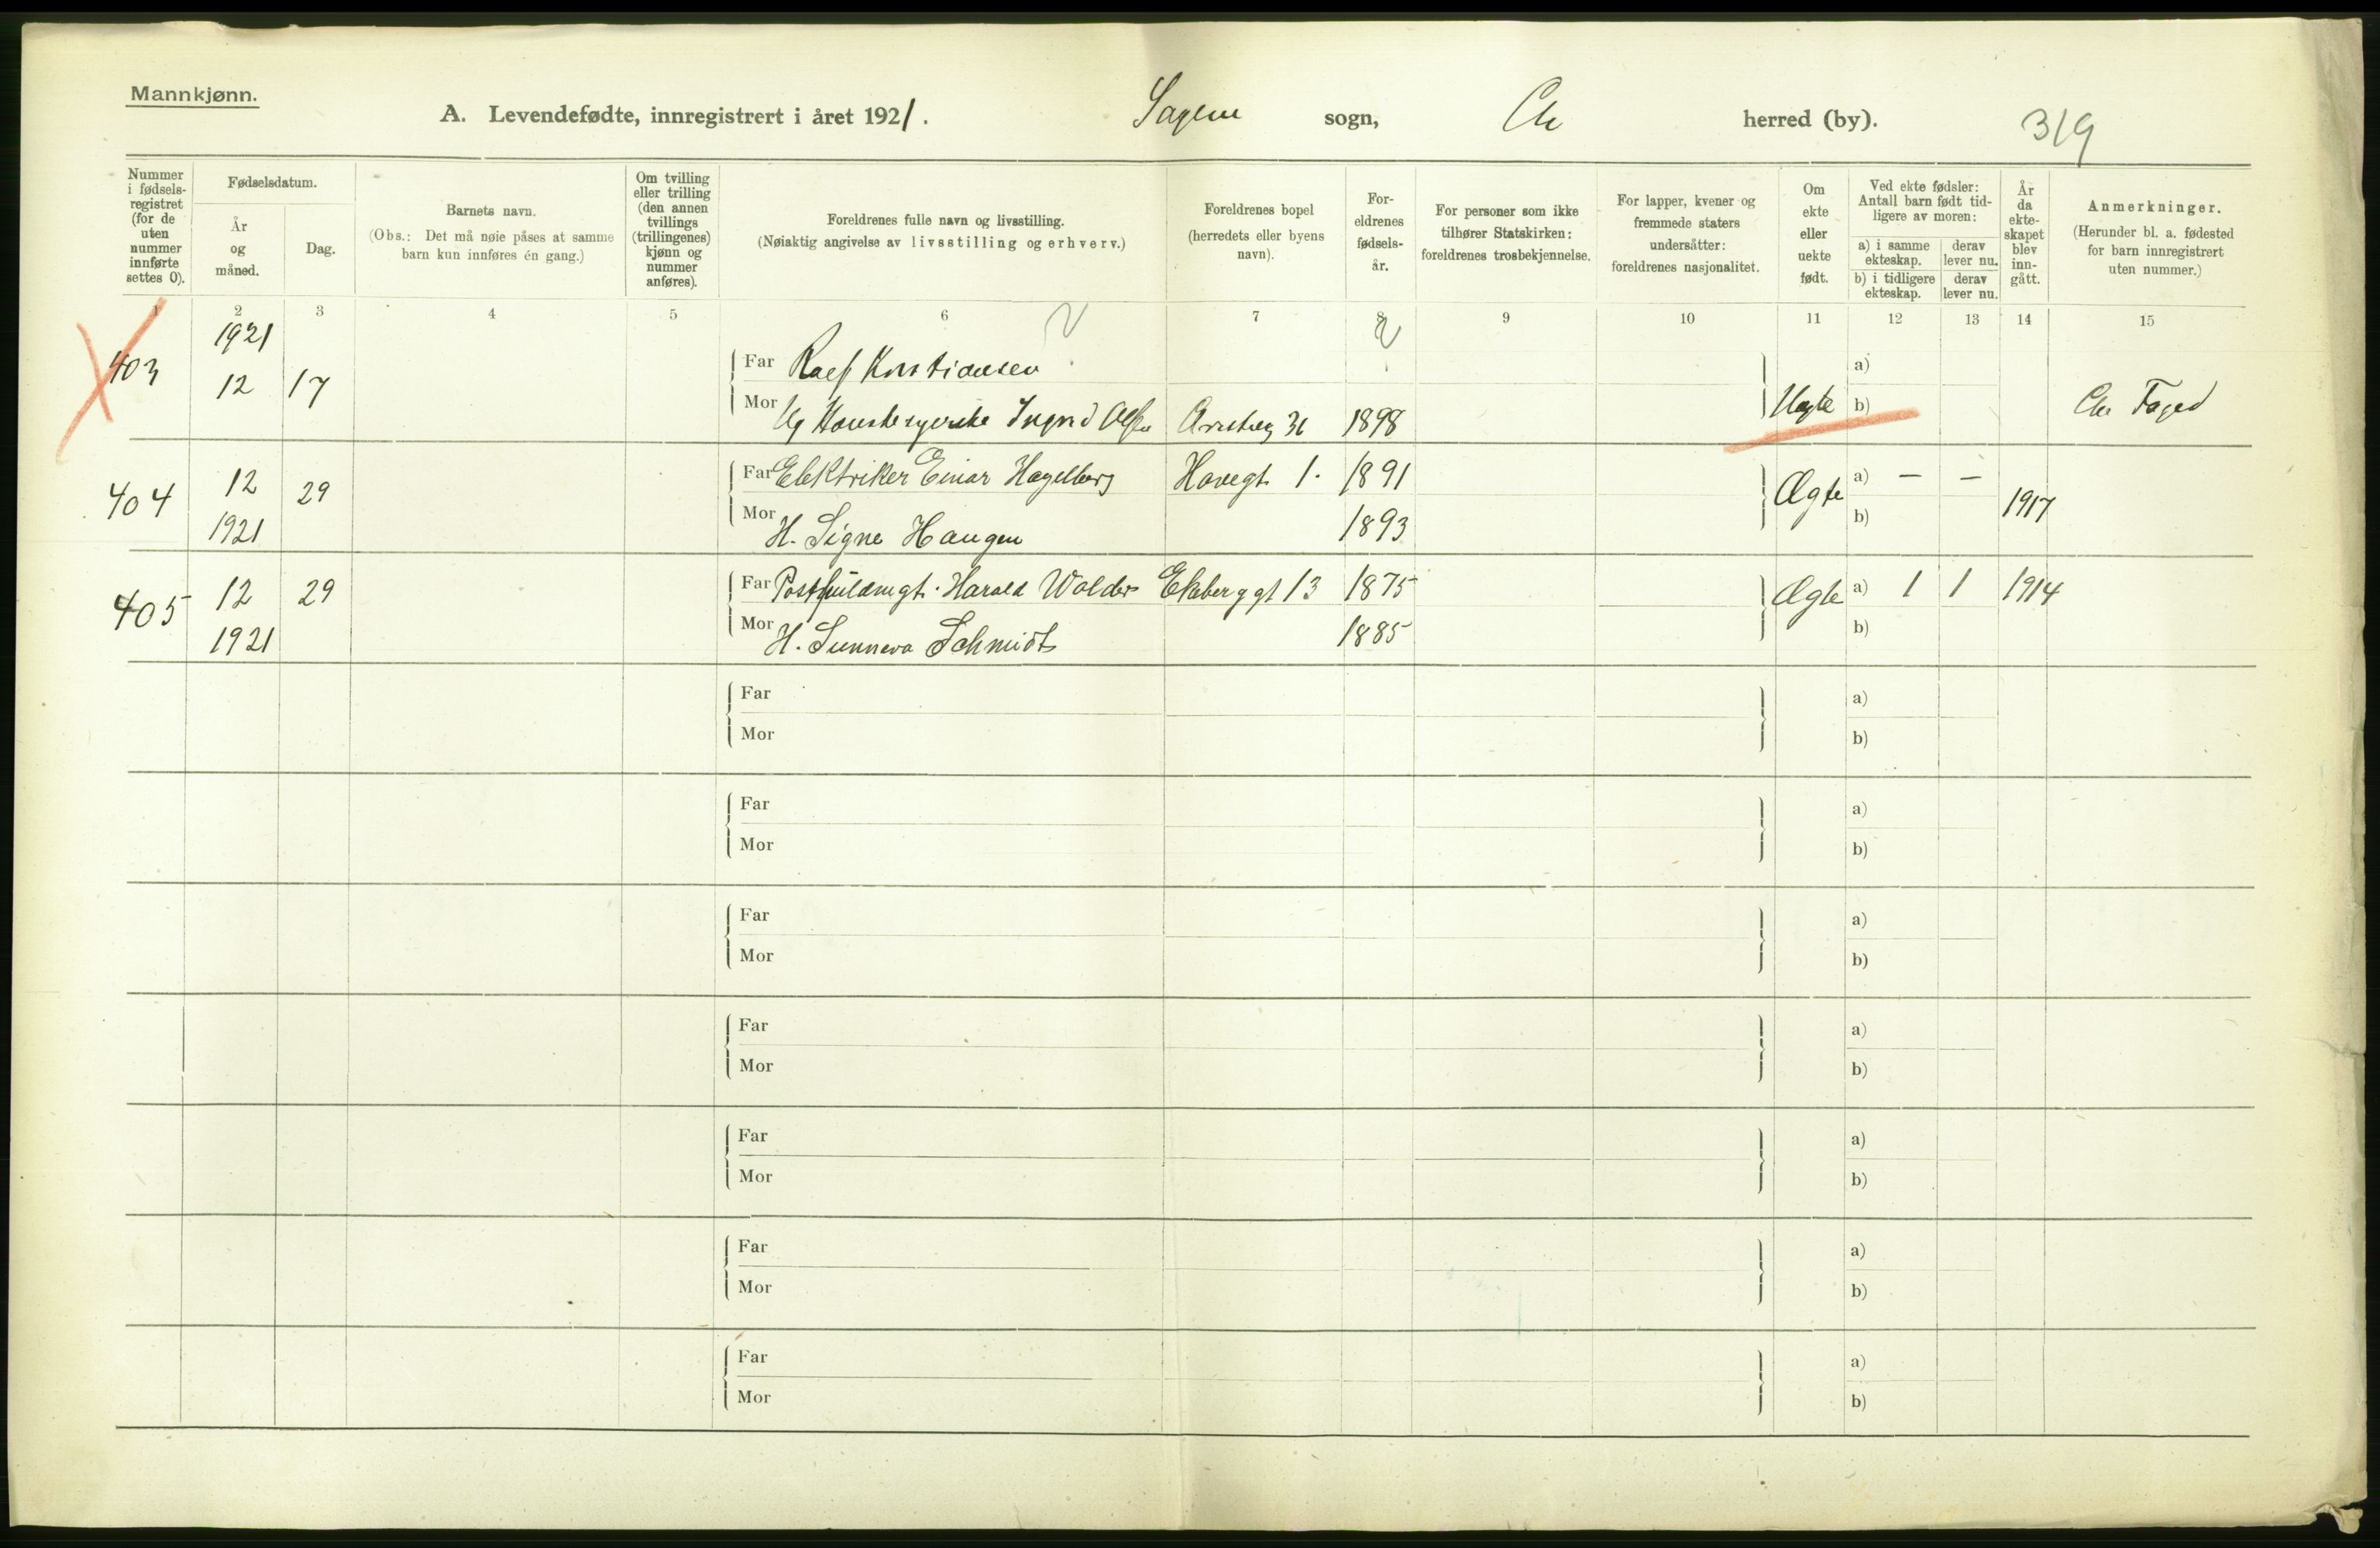 Mannkjønn.
A. Levendefødte, innregistrert i året 1921. Sagene sogn, Chr herred (by). 319
Nummer i fødsels-registret (for de uten nummer innførte settes 0).
Fødselsdatum.
År og måned.
Dag.
Barnets navn.
(Obs.: Det må nøie påses at samme barn kun innføres én gang.)
Om tvilling eller trilling (den annen tvillings (trillingenes) kjønn og nummer anføres).
Foreldrenes fulle navn og livsstilling.
(Nøiaktig angivelse av livsstilling og erhverv.)
Foreldrenes bopel (herredets eller byens navn).
For-eldrenes fødsels-år.
For personer som ikke tilhører Statskirken: foreldrenes trosbekjennelse.
For lapper, kvener og fremmede staters undersåtter: foreldrenes nasjonalitet.
Om ekte eller uekte født.
Ved ekte fødsler: Antall barn født tid-ligere av moren:
a) i samme ekteskap.
derav lever nu.
b) i tidligere ekteskap.
derav lever nu.
År da ekte-skapet blev inn-gått.
Anmerkninger.
(Herunder bl. a. fødested for barn innregistrert uten nummer.)
1 2 3 4 5 6 7 8 9 10 11 12 13 14 15
403 1921 12 17
Far Ralf Kristiansen a)
Mor Ug Ingrid 31 1898 Uegte b) Chr
404 12 1921 29
Far Elektriker Einar Hagelberg Havegt. 1. 1891 Ægte a) – – 1917
Mor H. Signe Haugen 1893 b)
405 12 1921 29
Far Harald Wolder Ekeberggt 13 1875 Ægte a) 1 1 1914
Mor H. Sunneva Schmidt 1885 b)
Far a)
Mor b)
Far a)
Mor b)
Far a)
Mor b)
Far a)
Mor b)
Far a)
Mor b)
Far a)
Mor b)
Far a)
Mor b)